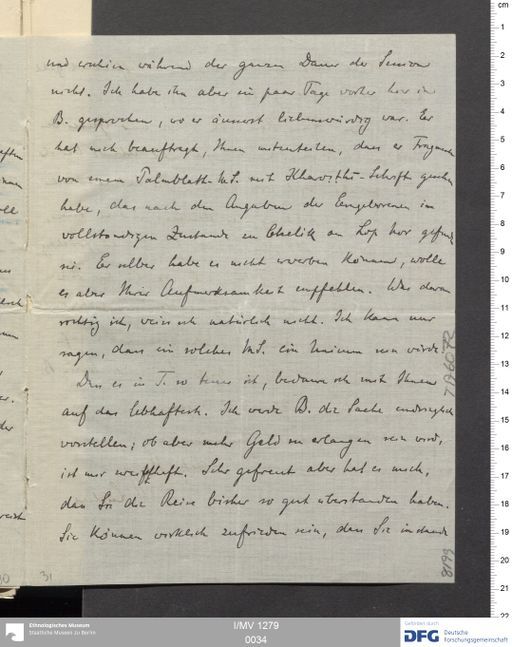 und erschien während der ganzen Dauer der Session
nicht. Ich habe ihn aber ein paar Tage vorher hier in
B. gesprochen, wo er äusserst liebenswürdig war. Er
hat mich beauftragt, Ihnen mitzuteilen, dass er Fragmente
von einem Palmblatt-MS. mit Kharoṣṭhī-Schrift gesehen
habe, das nach den Angaben der Eingeborenen im
vollständigen Zustande in am Lop Nor gefunden
sei. Er selber habe es nicht erwerben können, wolle
es aber Ihrer Aufmerksamkeit empfehlen. Was daran
richtig ist, weiss ich natürlich nicht. Ich kann nur
sagen, dass ein solches MS. ein Unicum sein würde
Dass es in T. so teuer ist, bedaure ich mit Ihnen
auf das lebhafteste. Ich werde B. die Sache eindringlich
vorstellen; ob aber mehr Geld zu erlangen sein wird,
ist mir zweifelhaft. Sehr gefreut aber hat es mich,
dass Sie die Reise bisher so gut überstanden haben.
Sie können wirklich zufrieden sein, dass Sie
31
TA 6072
8199
Ethnologisches Museum
Staatliche Museen zu Berlin
I/MV 1279
0034
Gefördert durch
DFG Deutsche
Forschungsgemeinschaft
cm
1
2
3
4
5
6
7
8
9
10
11
12
13
14
15
16
17
18
19
20
21
22